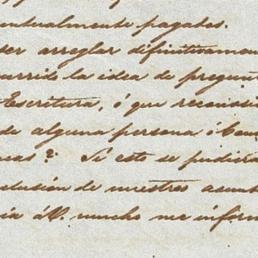 mensualmente pagables.
der arreglar difinitivamen
currido la idea de pregun
Escritura, ó que
de alguna persona ó
eas? Si esto se pudiera
olusión de nuestros asunt
ia á V. mucho me inform